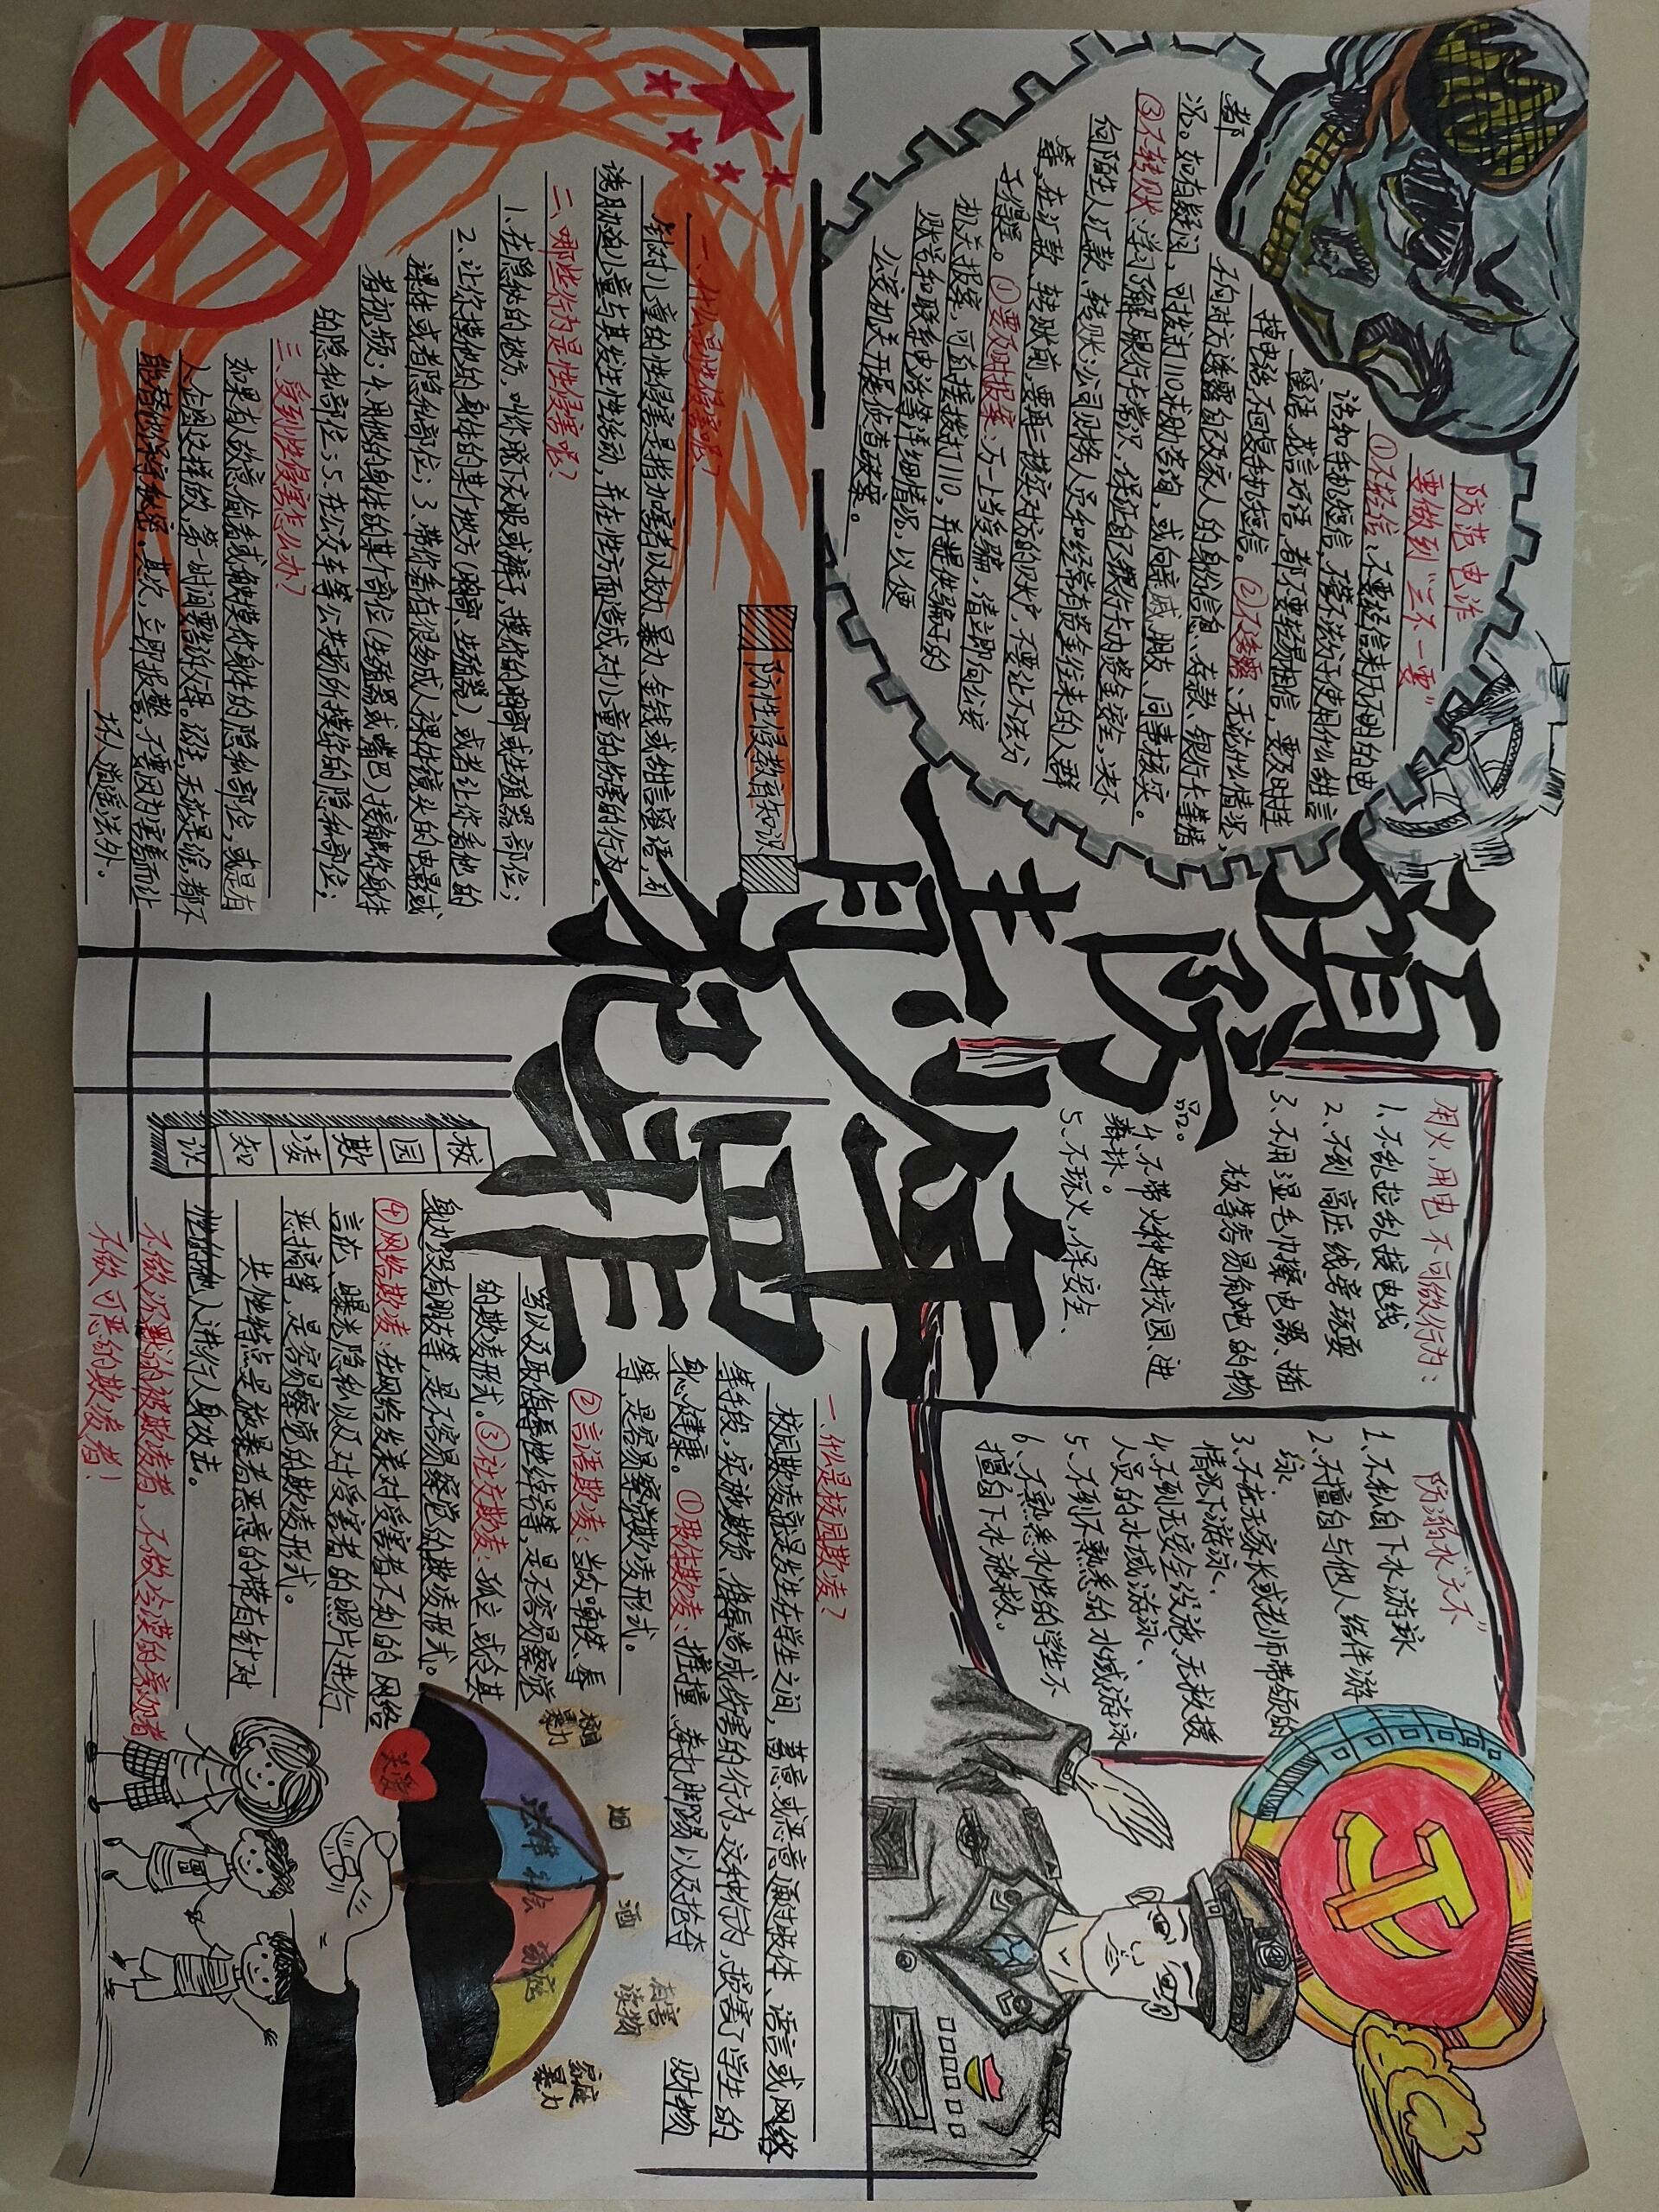 预防
青少年
犯罪
防范电诈
要做到“三不一要”
①不轻信、不要轻信来历不明的电
话和手机短信,不管不法分子使用什么甜言
蜜语、花言巧语,都不要轻易相信,要及时挂
掉电话,不回复手机短信。②不透露、无论什么情况,
不向对方透露自己及家人的身份信息、存款、银行卡等情
况。如有疑问,可拨打110求助咨询,或向亲戚、朋友、同事核实。
③不转账:学习了解银行卡常识,保证自己银行卡内资金安全,决不
向陌生人汇款、转账;公司财务人员和经常有资金往来的人群
等,在汇款、转账前,要再三核实对方的账户,不要让不法分
子得逞。①要及时报案:万一上当受骗,请立即向公安
机关报案,可直接拨打110,并提供骗子的
账号和联系电话等详细情况,以便
公安机关开展侦查破案。
都
用火、用电不可做行为:
1、不乱拉乱接电线
2、不到高压线旁玩耍
3、不用湿毛巾擦电器、插
板等容易触电的物
品。
4、不带火种进校园、进
森林。
5、不玩火,保安全、
防溺水“六不”
1、不私自下水游泳
2、不擅自与他人结伴游
泳
3、不在无家长或老师带领的
情况下游泳、
4、不到无安全设施、无救援
人员的水域游泳、
5、不到不熟悉的水域游泳
6、不熟悉水性的学生不
擅自下水施救。
防性侵教育知识
一、什么是性侵害呢?
针对儿童的性侵害是指加害者以权力、暴力、金钱或甜言蜜语,引
诱胁迫儿童与其发生性活动,并在性方面造成对儿童的伤害的行为。
二、哪些行为是性侵害呢?
1、在隐秘的地方,叫你脱下衣服或裤子,摸你的胸部或生殖器部位;
2、让你摸他的身体的某个地方(胸部、生殖器),或者让你看他的
裸体或者隐私部位;3、带你看有很多成人裸体镜头的电影或
者视频;4、用他的身体的某个部位(生殖器或嘴巴)接触你身体
的隐私部位;5、在公交车等公共场所摸你的隐私部位;
三、受到性侵害怎么办?
如果有人故意偷看或触摸你身体的隐私部位,或是有
人企图这样做,第一时间要告诉父母、班主,无论是谁,都不
能替他保守秘密。其次,立即报警,不要因为害羞而让
坏人逍遥法外。
校园欺凌知识
一、什么是校园欺凌?
校园欺凌就是发生在学生之间,蓄意或恶意通过肢体、语言或网络
等手段,实施欺负、侮辱造成伤害的行为,这种行为,损害了学生的
身心健康。①肢体欺凌:推撞、拳打脚踢以及抢夺财物
等,是容易察觉欺凌形式。
②言语欺凌:当众嘲笑、辱
骂以及取侮辱性绰号等,是不容易察觉
的欺凌形式。③社交欺凌:孤立、或令其
身边没有朋友等,是不容易察觉的欺凌形式。
④网络欺凌:在网络发表对受害者不利的网络
言论、曝光隐私以及对受害者的照片进行
恶搞等,是容易察觉的欺凌形式。
共性特点是施暴者恶意的带有针对
性的他人进行人身攻击。
不做沉默的被欺凌者,不做冷漠的旁观者
不做可恶的欺凌者!
校园
暴力
烟
酒
有害
读物
家庭
暴力
法律
社会
家庭
关爱